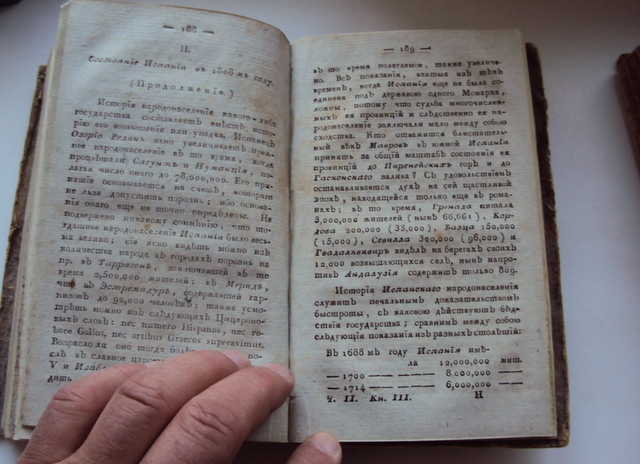 — 188 —
II.
Состоянїе Испанїи въ 1808 мъ году.
(Продолженїе.)
Исторїя народонаселенїя какого-либо
государства составляетъ вмѣстѣ исто-
рїю его возвышенїя или упадка. Испанецъ
Озорїо Рединъ явно увеличиваетъ преж-
нее народонаселенїе въ то время, когда
процвѣтали Сагунтъ и Нуманцїя, по-
лагая число онаго до 78,000,000. Его при-
нятїе основывается на счетѣ, котораго
не льзя допустить порознь; ибо основа-
нїя онаго еще не точно опредѣлены. Не
подвержено никакому сомнѣнїю, что то-
гдашнее народонаселенїе Испанїи было весь-
ма велико; сїе ясно видѣть можно изъ
количества народа въ городахъ порознь на
пр. въ Таррагонѣ, заключавшей въ то
время 2,500,000 жителей; въ Меридѣ,
что въ Эстремадурѣ, содержавшей гар-
низонъ до 90,000 человѣкъ; также усмо-
трѣть можно изъ слѣдующихъ Цицероно-
выхъ словъ: nec numero Hispanos, nec ro-
bore Gallos, nec artibus Graecos superavimus.
Возрасло ли оно тогда
слѣ въ славное
V и
дить
— 189 —
въ то время полагаемое, также увеличе-
но. Всѣ показанїя, взятыя изъ тѣхъ
временъ, когда Испанїя еще не была со-
единена подъ державою одного Монарха,
ложны, потому что судьба многочислен-
ныхъ ея провинцїй и слѣдственно ея на-
родонаселенїе заключали мало между собою
сходства. Кто отважится блистатель-
ный вѣкъ Мавровъ въ южной Испанїи
принять за общїй масштабъ состоянїя ея
провинцїй до Пиренейскихъ горъ и до
Гасконскаго залива? Съ удовольствїемъ
останавливается духъ на сей щастливой
эпохѣ, находящейся только еще въ рома-
нахъ; въ то время, Гренада питала
3,000,000 жителей (нынѣ 66,661), Кор-
дова 200,000 (35,000), Базца 150,000
(15,000), Севилла 300,000 (96,000) и
Гвадалквивиръ видѣлъ на берегахъ своихъ
12,000 возвышающихся селъ, нынѣ напро-
тивъ Андалузїя содержитъ только 809.
Исторїя Испанскаго народонаселенїя
служитъ печальнымъ доказательствомъ
быстроты, съ каковою дѣйствуютъ бѣд-
ствїя государства; сравнимъ между собою
слѣдующїя показанїя изъ разныхъ столѣтїй:
Въ 1688 мъ году Испанїя имѣ-
ла 10,000,000 жит.
— 1700 — — 8,000,000 —
— 1714 — — 6,000,000 —
Ч. II. Кн. III. Н